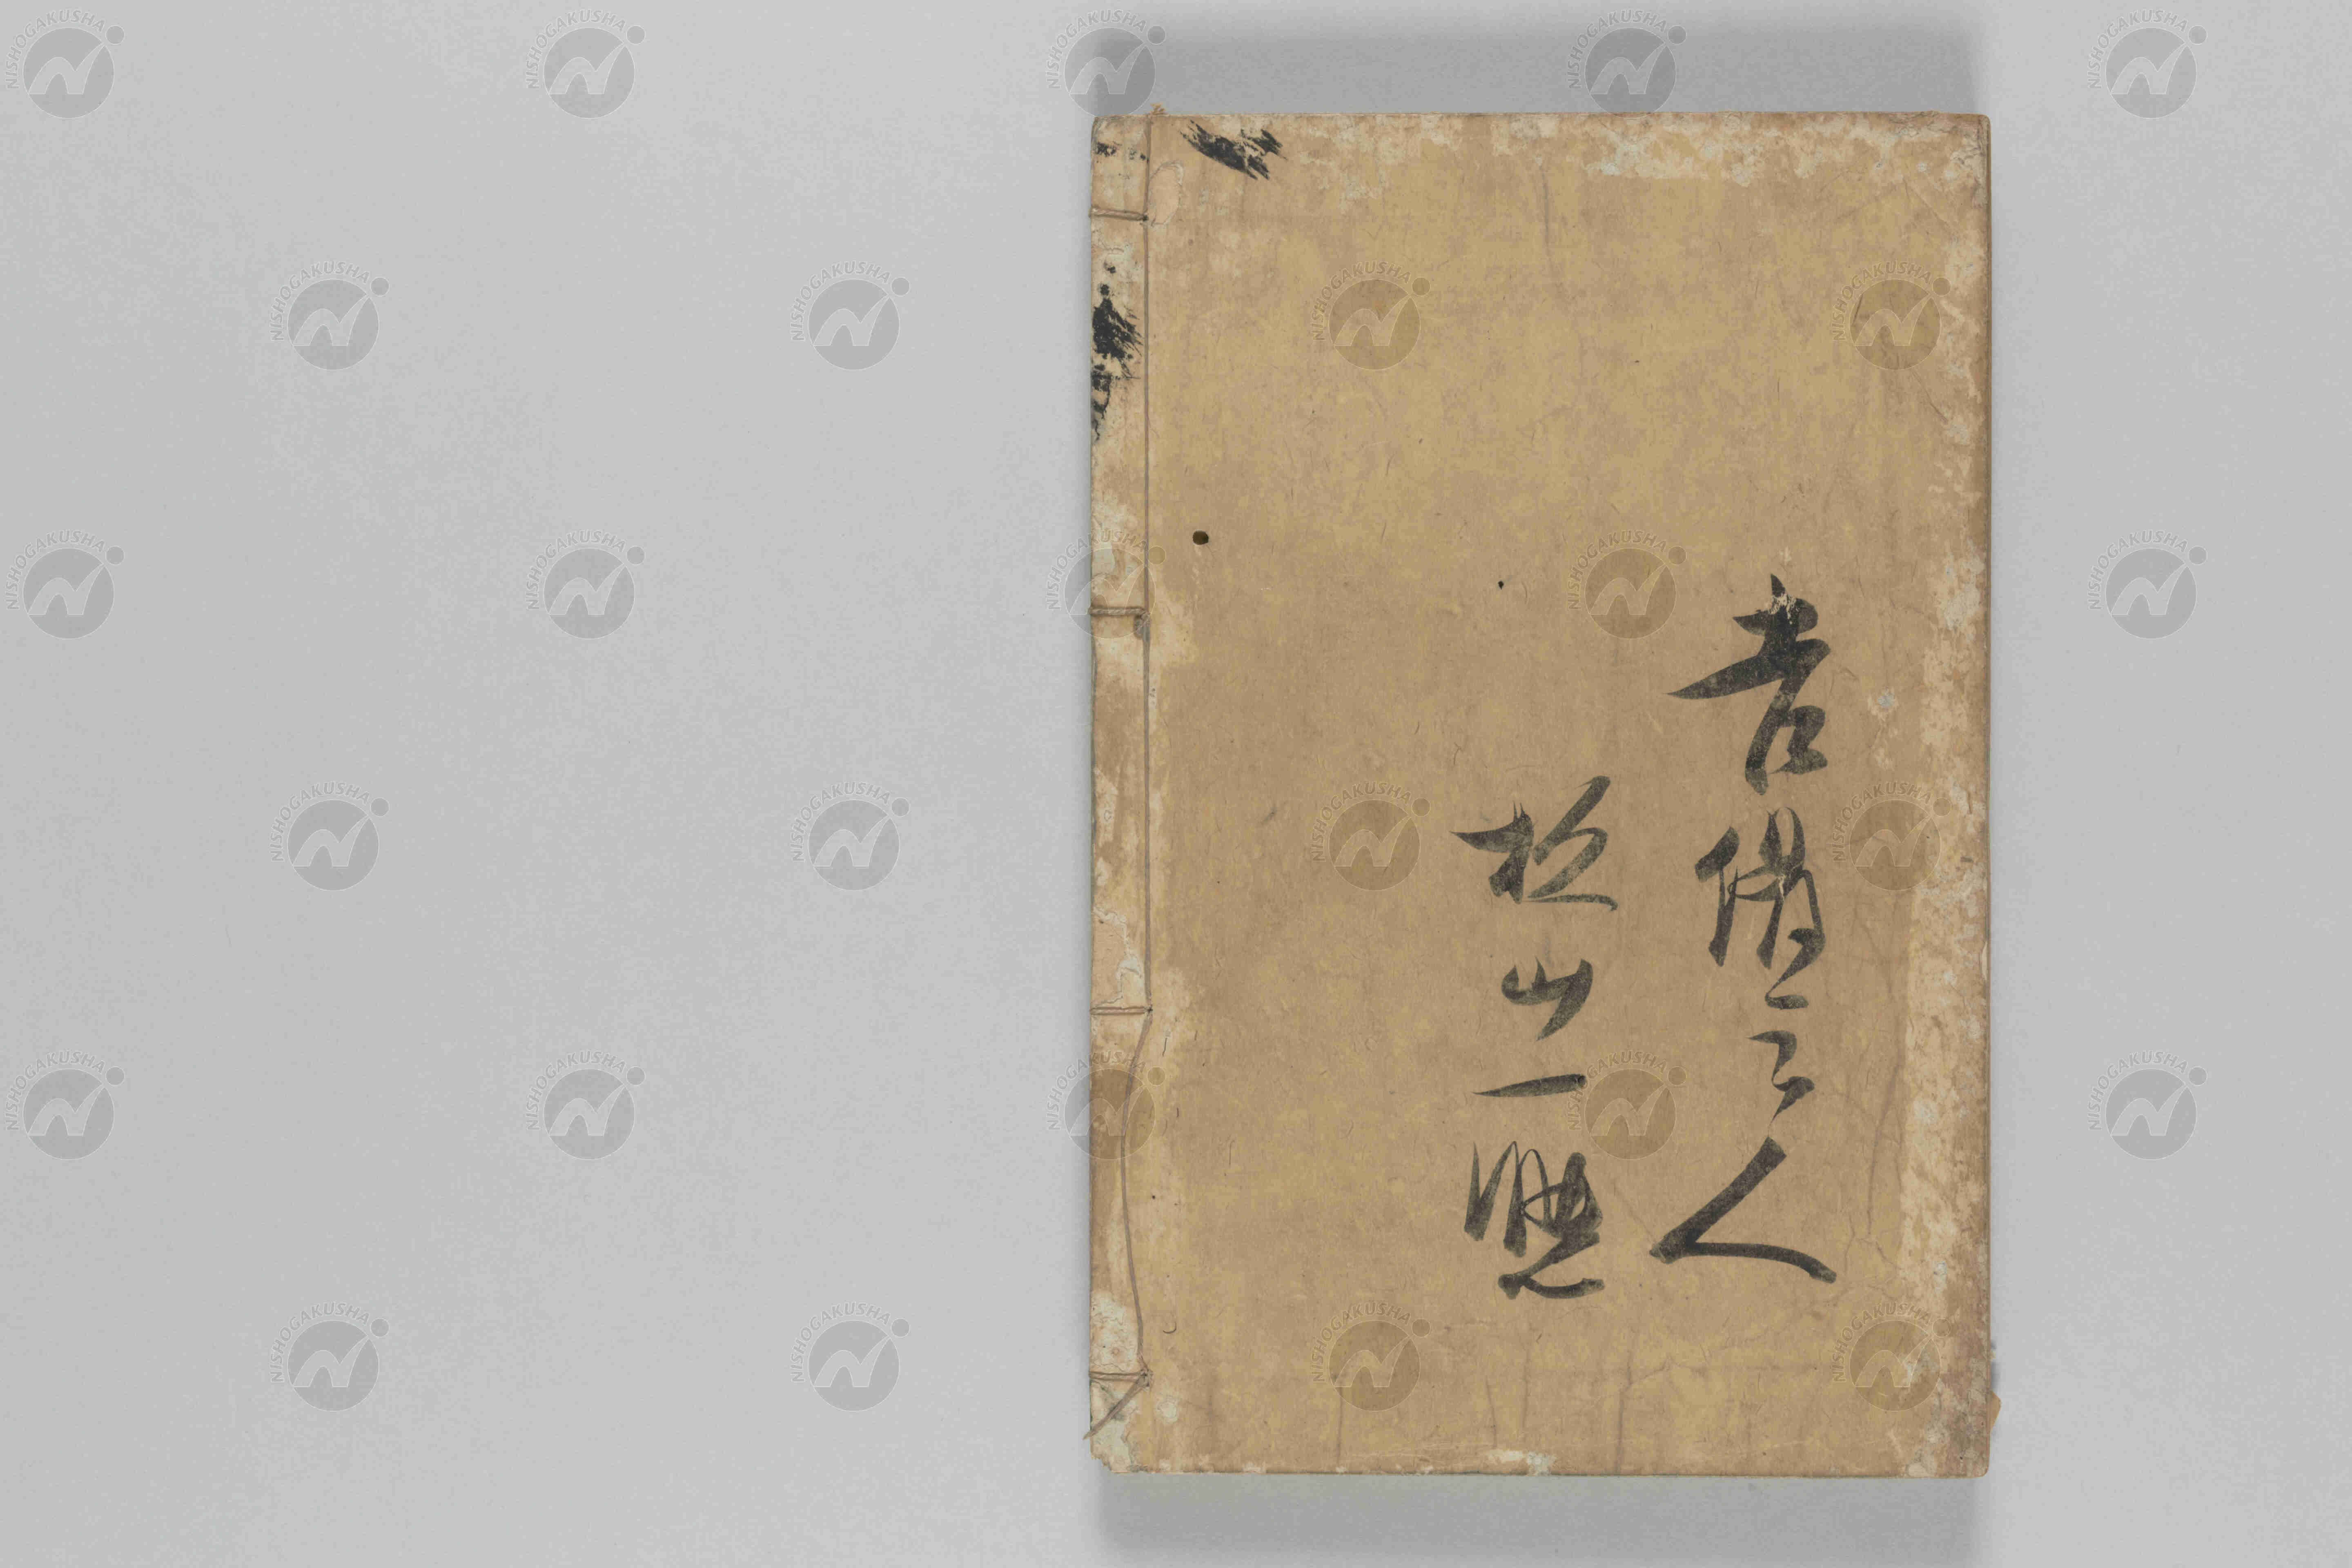 吉備之人
松山一㒒
NISHOGAKUSHA